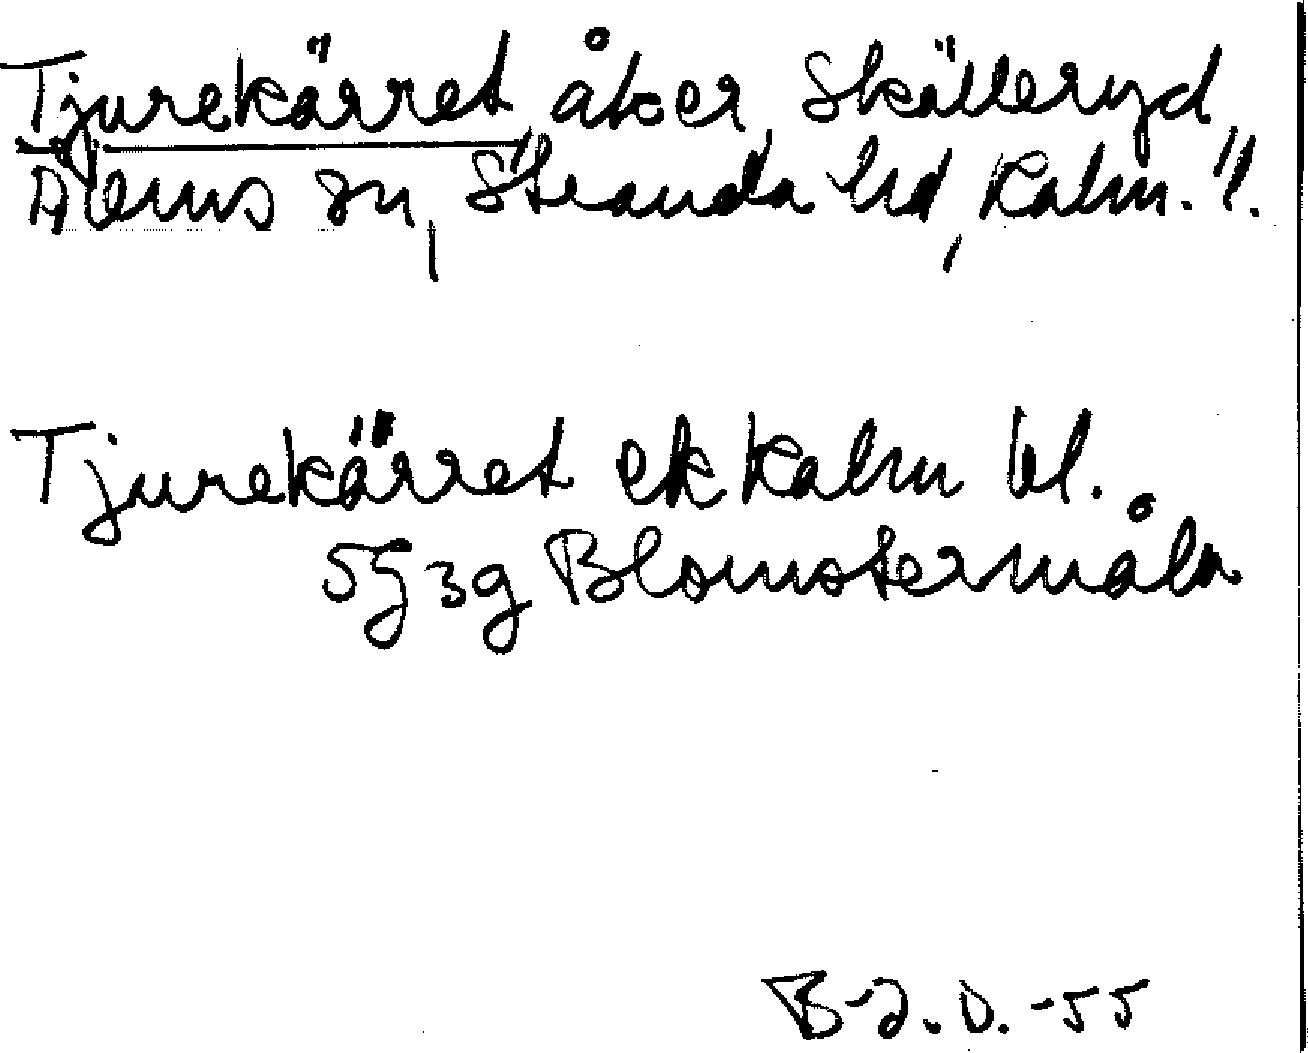 Tjurekärret, åker, Skälleryd,
Ålems sn, Stranda hd, Kalm. l.
Tjurekärret ek Kalm bl.
5G3g Blomstermåla
B-J.O. -55